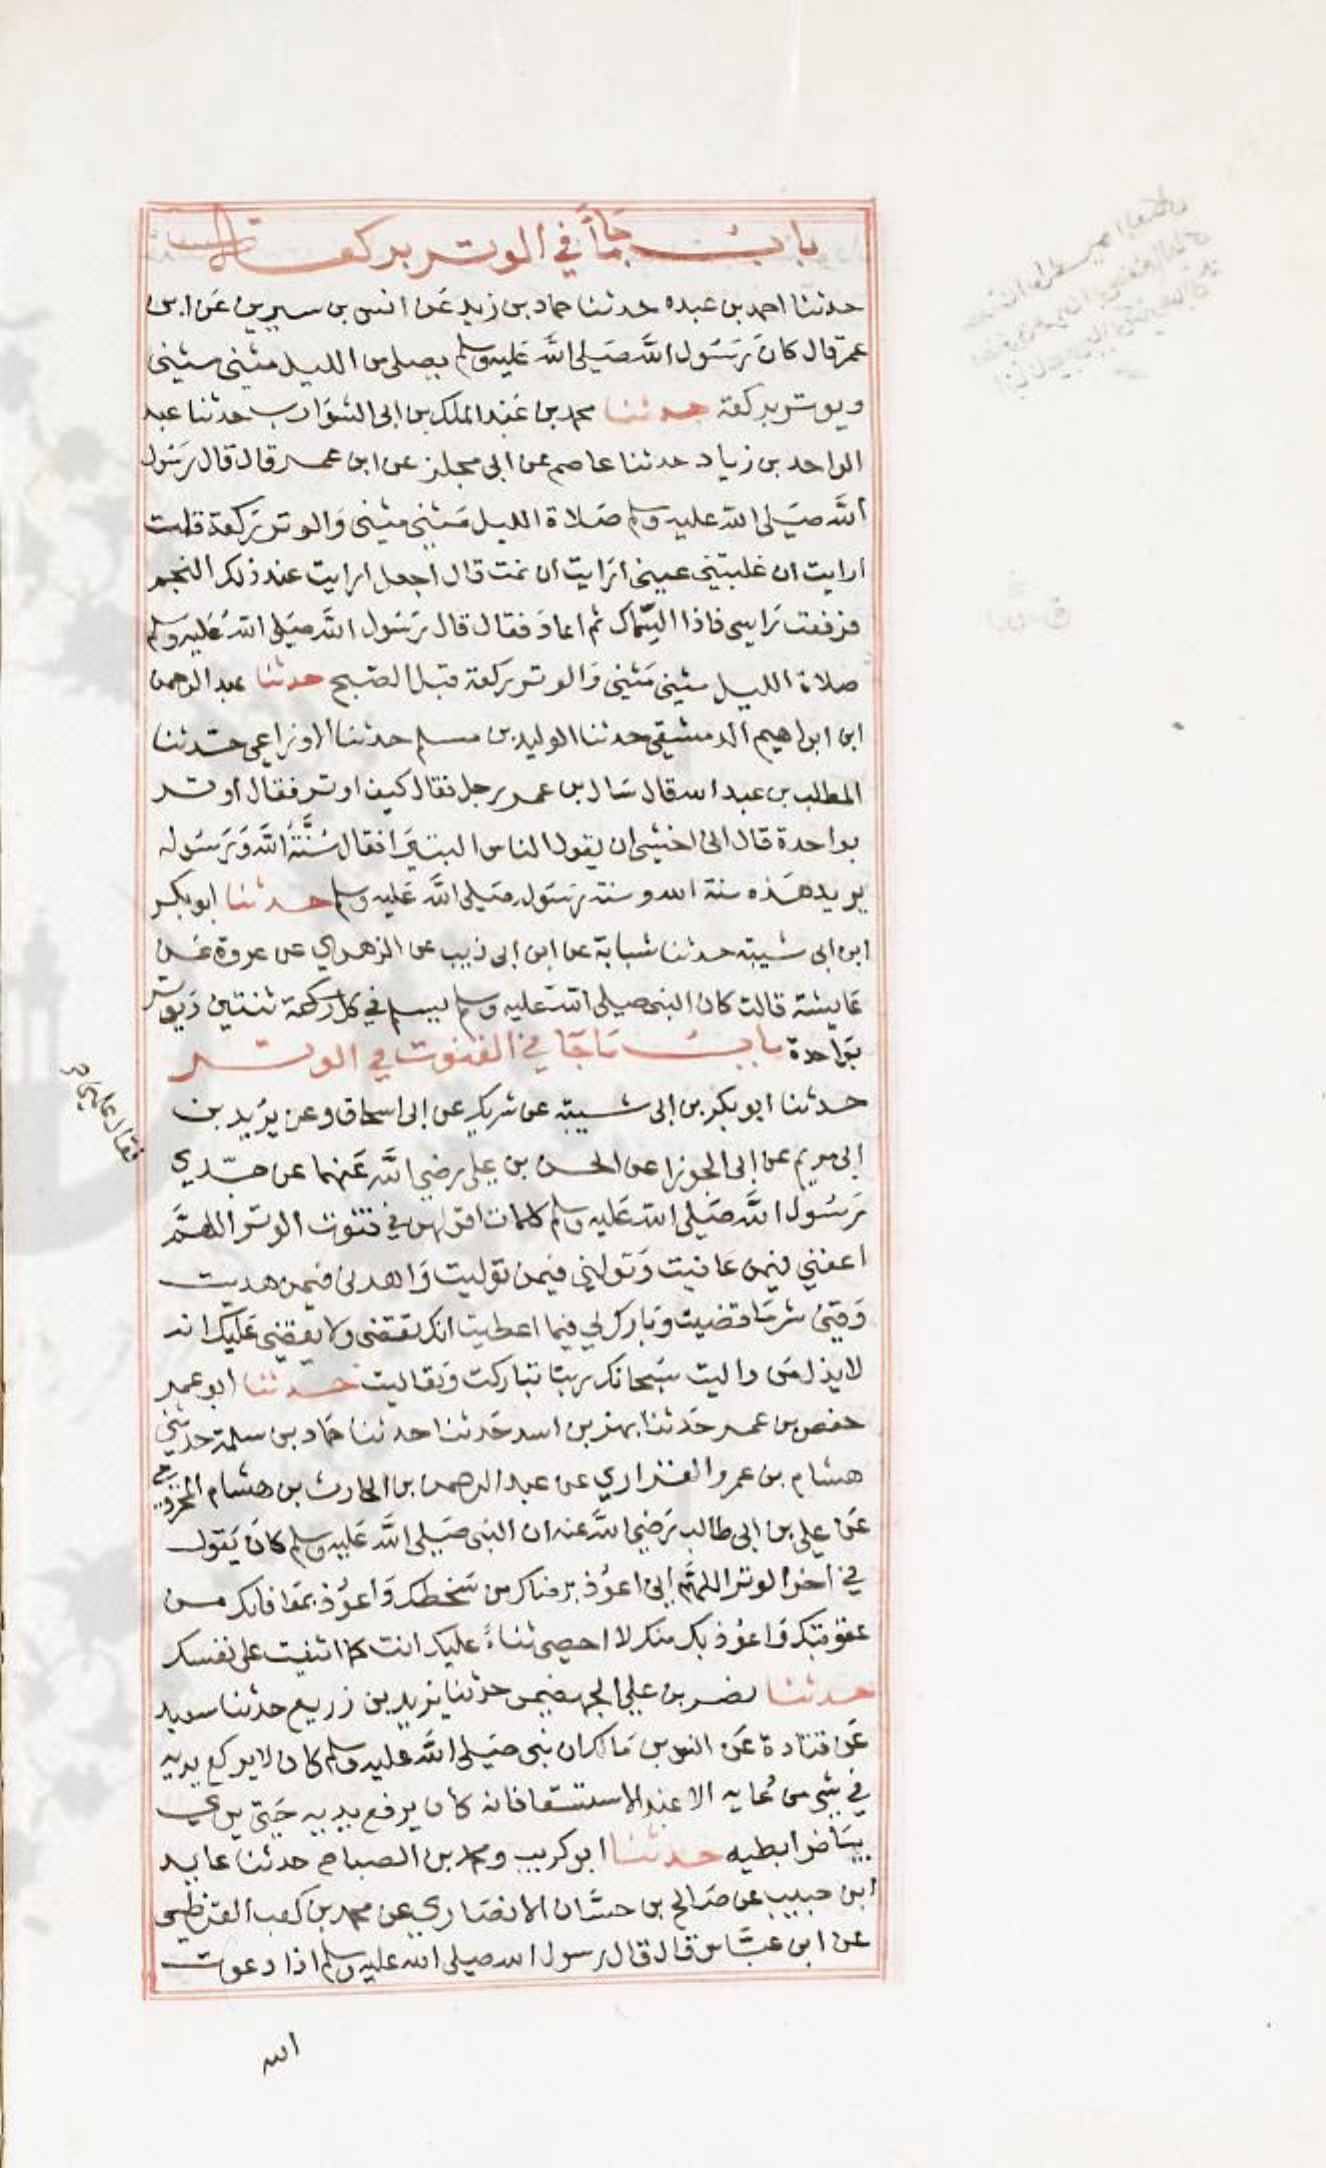 باب ما جأ في الوتر بركعة
حدثنا احمد بن عبده حدثنا حماد بن زيد عن انس بن سيرين عن ابن
عمر قال كان رسول الله صلى الله عليه وسلم يصلى من الليل مثنى مثنى
ويوتر بركعة حدثنا محمد بن عبد الملك بن ابى الشوارب حدثنا عبد
الواحد بن زياد حدثنا عاصم عن ابى مجلز عن ابن عمر قال قال رسول
الله صلى الله عليه وسلم صلاة الليل مثنى مثنى والوتر ركعة قلت
ارايت ان غلبتنى عينى ارايت ان نمت قال اجعل ارايت عند ذلك النجم
فرفعت راسى فاذا السِّماك ثم اعاد فقال قال رسول الله صلى الله عليه وسلم
صلاة الليل مثنى مثنى والوتر ركعة قبل الصبح حدثنا عبد الرحمن
ابن ابراهيم الدمشقى حدثنا الوليد بن مسلم حدثنا الاوزاعى حدثنا
المطلب بن عبد الله قال سال بن عمر رجل فقال كيف اوتر فقال اوتر
بواحدة قال انى اخشى ان يقول الناس البتيرا فقال سُنَّةُ الله ورسوله
يريد هذه سنة الله وسنة رسول صلى الله عليه وسلم حدثنا ابو بكر
ابن ابى شيبة حدثنا شبابة عن ابن ابى ذيب عن الزهري عن عروة عن
عايشة قالت كان النبى صلى الله عليه وسلم يسلم في كل ركعة ثنتين ويوتر
بواحدة باب ما جآ في القنوت في الوتر
حدثنا ابو بكر بن ابى شيبة عن شريك عن ابى اسحاق وعن يزيد بن
ابى مريم عن ابى الجوزا عن الحسن بن على رضي الله عنهما عن جدّي
رسول الله صلى الله عليه وسلم كلمات اقولهن في قنوت الوتر اللهم
اعفني فيمن عافيت وتولني فيمن توليت واهدنى فيمن هديت
وقنى شر ما قضيت وبارك لي فيما اعطيت انك تقضى ولا يقضى عليك انه
لا يذل من واليت سبحانك ربنا تباركت وتعاليت حدثنا ابو عمر
حفص بن عمر حدثنا بهز بن اسد حدثنا حدثنا حماد بن سلمة حدثني
هشام بن عمرو الفزاري عن عبد الرحمن بن الحارث بن هشام المخزومي
عن علي بن ابى طالب رضي الله عنه ان النبى صلى الله عليه وسلم كان يقول
في اخر الوتر اللهم إنى اعوذ برضاك من سخطك واعوذ بمعافاتك من
عقوبتك واعوذ بك منك لا احصى ثناءً عليك انت كما اثنيت على نفسك
حدثنا نصر بن علي الجهضمى حدثنا يزيد بن زريع حدثنا سعيد
عن قتادة عن انس بن مالك ان نبى صلى الله عليه وسلم كان لا يرفع يديه
في شي من دعايه الا عند الاستسقا فانه كان يرفع يديه حتى يرى
بياض ابطيه حدثنا ابو كريب ومحمد بن الصباح حدثنا عايد
ابن حبيب عن صالح بن حسَّان الانصاري عن محمد بن كعب القرظي
عن ابن عبَّاس قال قال رسول الله صلى الله عليه وسلم اذا دعوت
الله